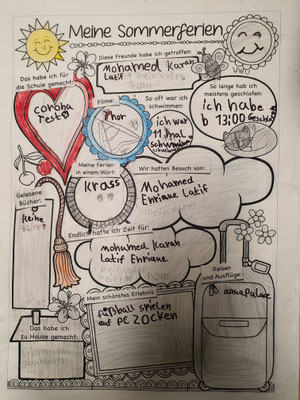 Meine Sommerferien
Diese Freunde habe ich getroffen:
Mohamed Karah
Latif
UWU
Das habe ich für
die Schule gemacht:
corona
Test
Filme:
Thor
So oft war ich
schwimmen:
ich war
11 mal
schwimmen
So lange hab ich
meistens geschlafen:
ich habe
b 13:00
Meine Ferien
in einem Wort:
Krass
Wir hatten Besuch von:
Mohamed
Enrique Latif
Gelesene
Bücher:
Keine
Endlich hatte ich Zeit für:
mohamed Karah
Latif Enrique
Mein schönstes Erlebnis:
fußball spielen
auf PC ZOCKEN
Reisen
und Ausflüge:
Das habe ich
zu Hause gemacht: